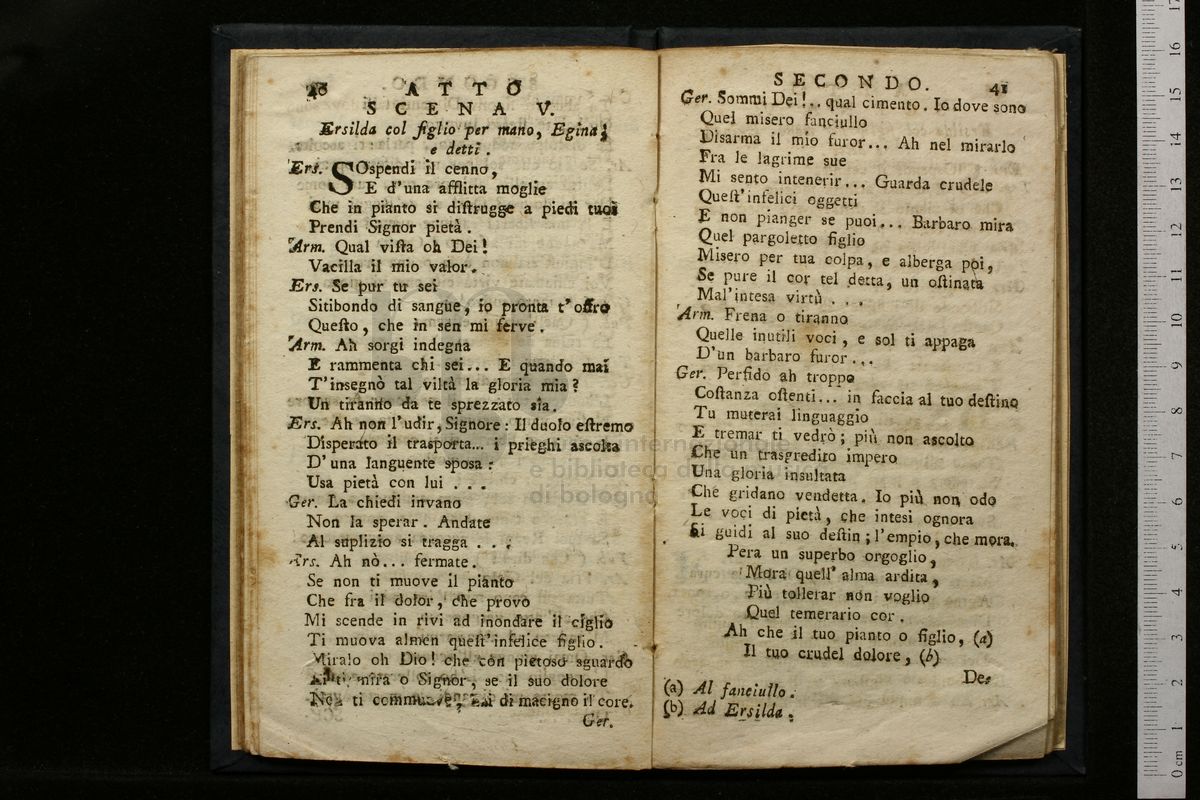 40 ATTO
SCENA V.
Ersilda col figlio per mano, Egina;
e detti.
Ers. SOspendi il cenno,
E d'una afflitta moglie
Che in pianto si diſtrugge a piedi tuoi
Prendi Signor pietà.
Arm. Qual viſta oh Dei!
Vacilla il mio valor.
Ers. Se pur tu sei
Sitibondo di sangue, io pronta t'offro
Queſto, che in sen mi ferve.
Arm. Ah sorgi indegna
E rammenta chi sei... E quando mai
T'insegnò tal viltà la gloria mia?
Un tiranno da te sprezzato sia.
Ers. Ah non l'udir, Signore: Il duolo eſtremo
Disperato il trasporta... i prieghi ascolta
D'una languente sposa:
Usa pietà con lui . . .
Ger. La chiedi invano
Non la sperar. Andate
Al suplizio si tragga . . .
Ers. Ah nò... fermate.
Se non ti muove il pianto
Che fra il dolor, che provo
Mi scende in rivi ad inondare il ciglio
Ti muova almen queſt'infelice figlio.
Miralo oh Dio! che con pietoso sguardo
mira o Signor, se il suo dolore
Non ti commuove, hai di macigno il core.
Ger.
SECONDO. 41
Ger. Sommi Dei!.. qual cimento. Io dove sono
Quel misero fanciullo
Disarma il mio furor... Ah nel mirarlo
Fra le lagrime sue
Mi sento intenerir... Guarda crudele
Queſt'infelici oggetti
E non pianger se puoi... Barbaro mira
Quel pargoletto figlio
Misero per tua colpa, e alberga poi,
Se pure il cor tel detta, un oſtinata
Mal'intesa virtù . . .
Arm. Frena o tiranno
Quelle inutili voci, e sol ti appaga
D'un barbaro furor...
Ger. Perfido ah troppo
Coſtanza oſtenti... in faccia al tuo deſtino
Tu muterai linguaggio
E tremar ti vedrò; più non ascolto
Che un trasgredito impero
Una gloria insultata
Che gridano vendetta. Io più non odo
Le voci di pietà, che intesi ognora
Si guidi al suo deſtin; l'empio, che mora.
Pera un superbo orgoglio,
Mora quell' alma ardita,
Più tollerar non voglio
Quel temerario cor.
Ah che il tuo pianto o figlio, (a)
Il tuo crudel dolore, (b)
De-
(a) Al fanciullo.
(b) Ad Ersilda.
internazionale
e biblioteca della musica
di bologna
0 cm 1 2 3 4 5 6 7 8 9 10 11 12 13 14 15 16 17